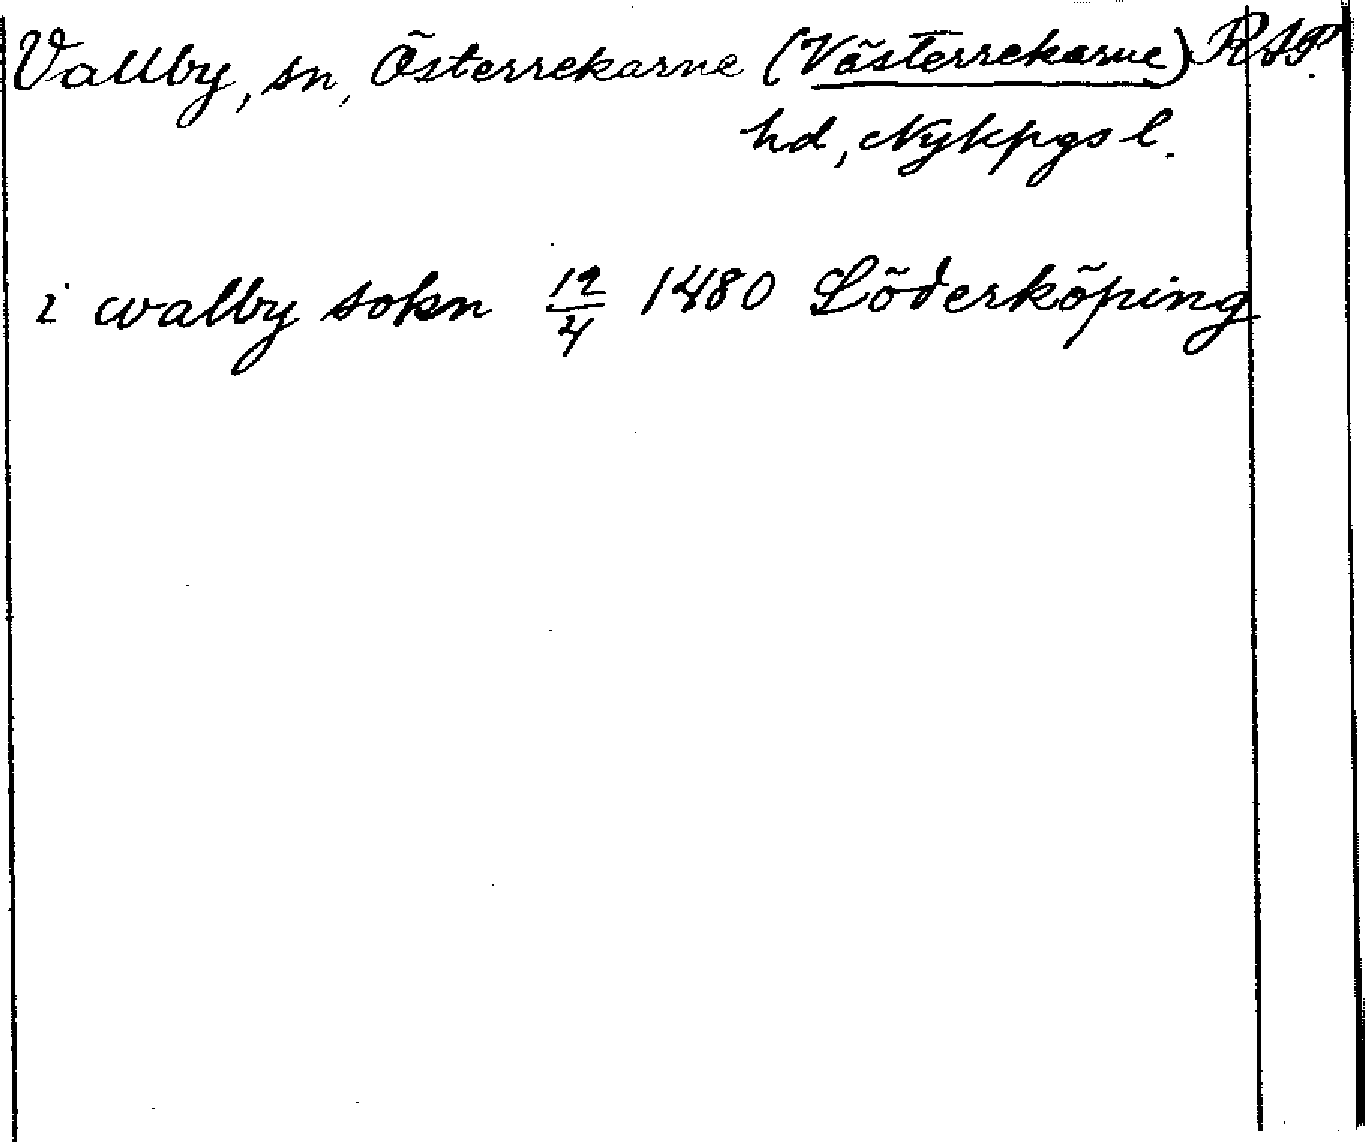 Vallby, sn, Österrekarne (Västerrekarne) RAP.
hd, Nykpgs l.
i walby sokn 12/4 1480 Söderköping